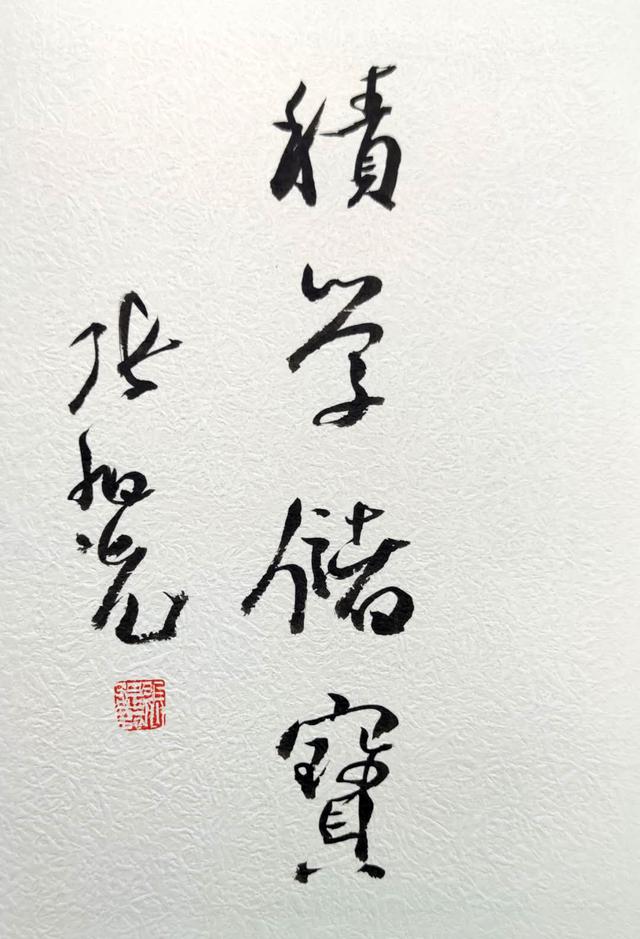 積学儲寶
张旭光